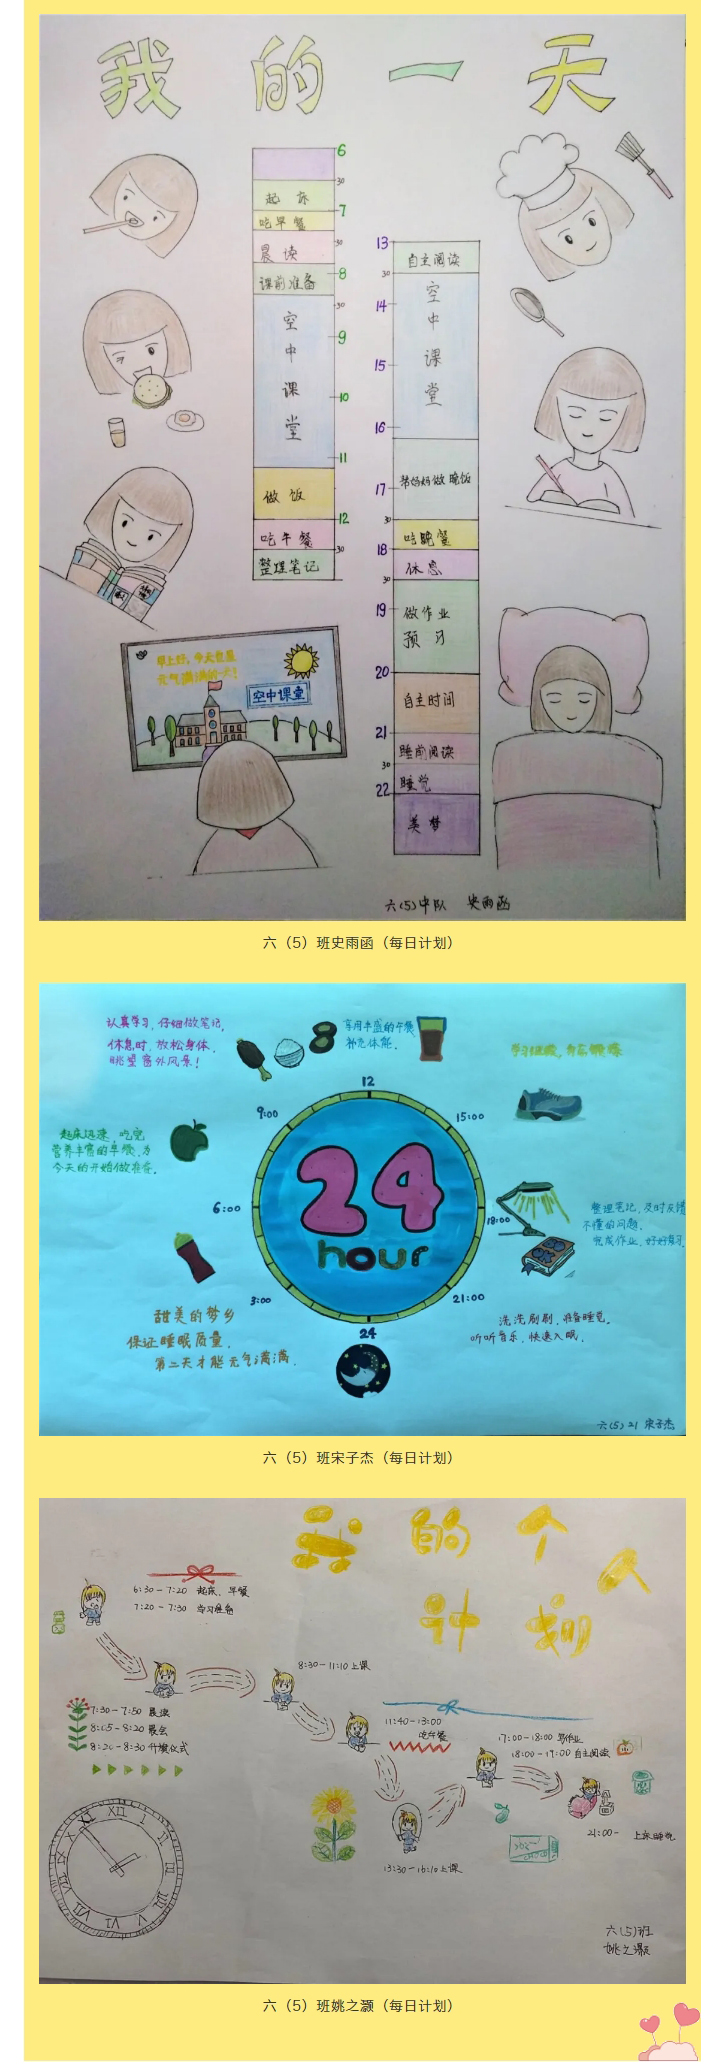 我的一天
6
30
起床
7
吃早餐
30
晨读
8
课前准备
30
空中课堂
9
10
11
做饭
12
吃午餐
30
整理笔记
13
自主阅读
30
14
空中课堂
15
16
帮妈妈做晚饭
17
30
吃晚餐
18
休息
30
19
做作业
预习
20
自主时间
21
睡前阅读
30
睡觉
22
美梦
早上好,今天也是
元气满满的一天!
空中课堂
六(5)中队 史雨函
六（5）班史雨函（每日计划）
认真学习,仔细做笔记,
休息时,放松身体,
眺望窗外风景!
享用丰盛的午餐
补充体能.
起床迅速,吃完
营养丰富的早餐,为
今天的开始做准备.
12
9:00
15:00
6:00
18:00
3:00
21:00
24
24
hour
整理笔记,及时反馈
不懂的问题.
完成作业,好好复习.
甜美的梦乡
保证睡眠质量,
第二天才能元气满满.
洗洗刷刷,准备睡觉.
听听音乐,快速入眠.
六(5)21 宋子杰
六（5）班宋子杰（每日计划）
我的个人
计划
6:30-7:20 起床、早餐
7:20-7:30 学习准备
7:30-7:50 晨读
8:05-8:20 晨会
8:20-8:30 升旗仪式
8:30-11:10 上课
11:40-13:00
吃午餐
13:30-16:10 上课
17:00-18:00 写作业
18:00-19:00 自主阅读
21:00- 上床睡觉
XII
I
六(5)班
姚之灏
六（5）班姚之灏（每日计划）